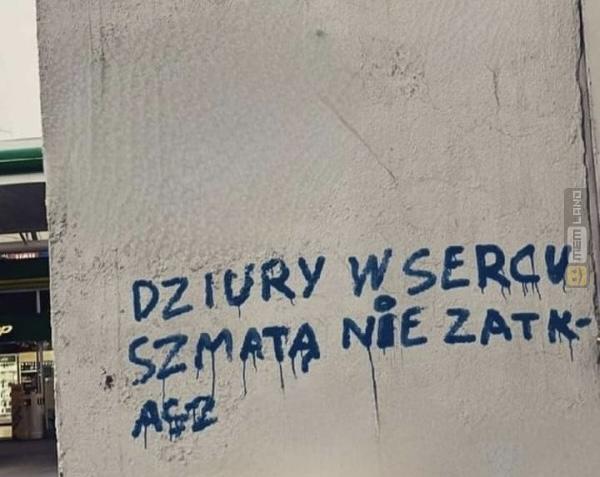 DZIURY W SERCU
SZMATĄ NIE ZATK-
ASZ
MEM LAND